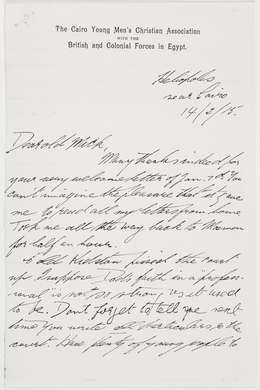 The Cairo Young Men's Christian Association
WITH THE
British and Colonial Forces in Egypt.
Heliopolis
near Cairo
14/2/15.
Dear old Mick,
Many thanks indeed for
your very welcome letter of Jan. 3rd. You
can't imagine the pleasure that it gave
me to read all my letters from home
Took me all the way back to
for half an hour.
finished the court
up. Suppose Dad's faith in a profess-
ional is not so strong as it used
to be. Don't forget to tell me next
time you write all particulars, & the
court. Have plenty of young people to